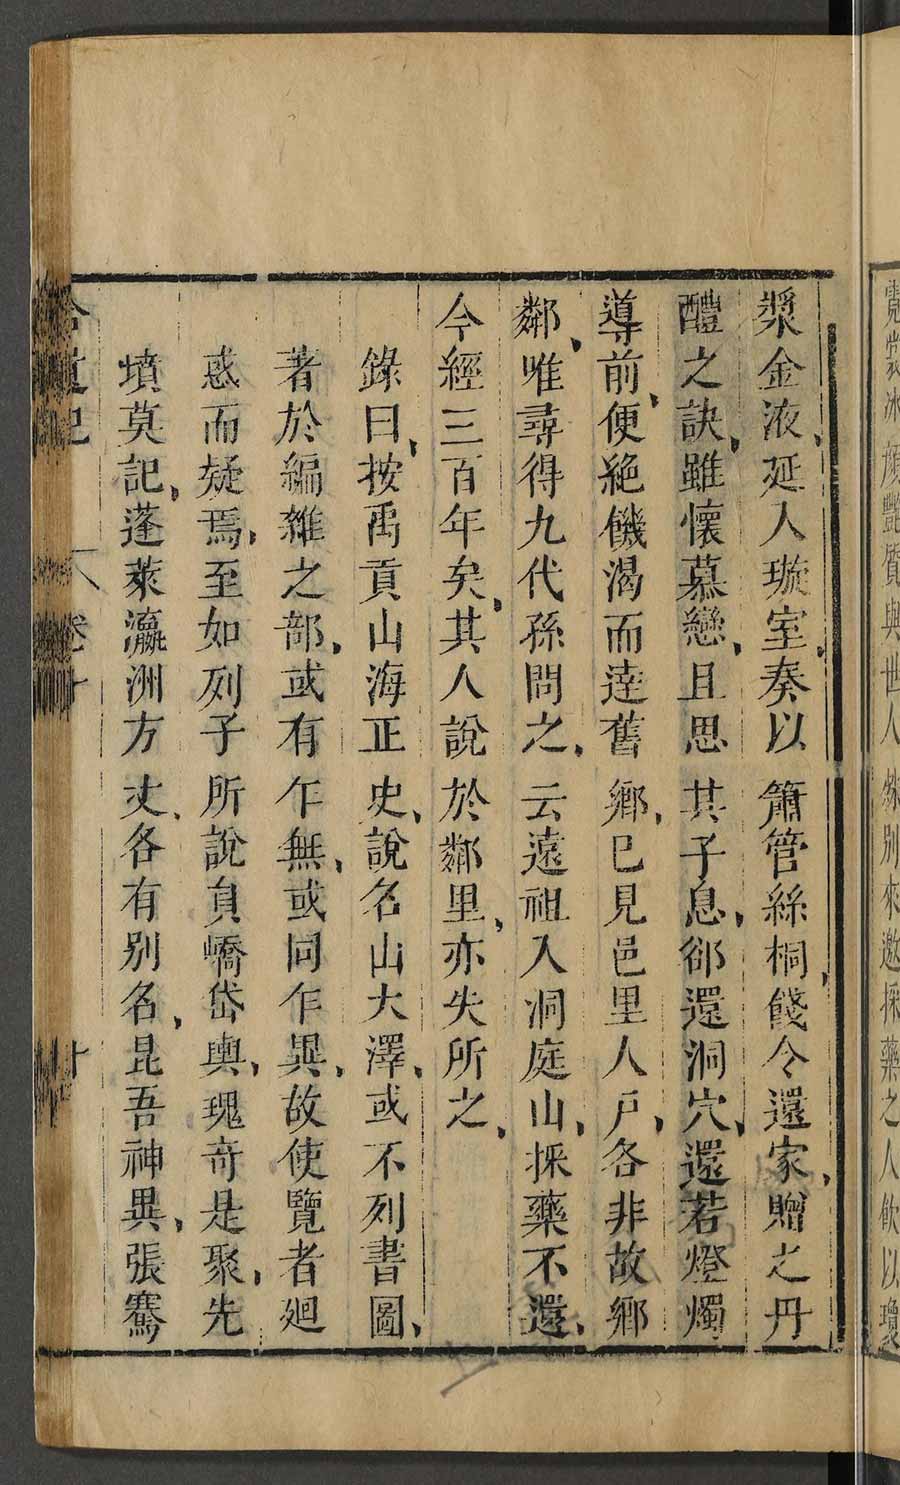 霓裳冰顏艷質與世人殊別來邀採藥之人飲以瓊
漿金液、延入璇室、奏以簫管絲桐、餞令還家、贈之丹
醴之訣、雖懷慕戀、且思其子息、郤還洞穴、還若燈燭
導前、便絕饑渴而逹舊鄉、已見邑里人戶、各非故鄉
鄰、唯尋得九代孫問之、云遠祖入洞庭山、採藥不還、
今經三百年矣、其人說於鄰里、亦失所之、
錄曰、按禹貢山海正史、說名山大澤、或不列書圖、
著於編雜之部、或有乍無、或同乍異、故使覽者廻
惑而疑焉、至如列子所說負嶠岱輿、瑰奇是聚、先
墳莫記、蓬萊瀛洲方丈、各有別名、昆吾神異、張騫
拾遺記 卷十 十